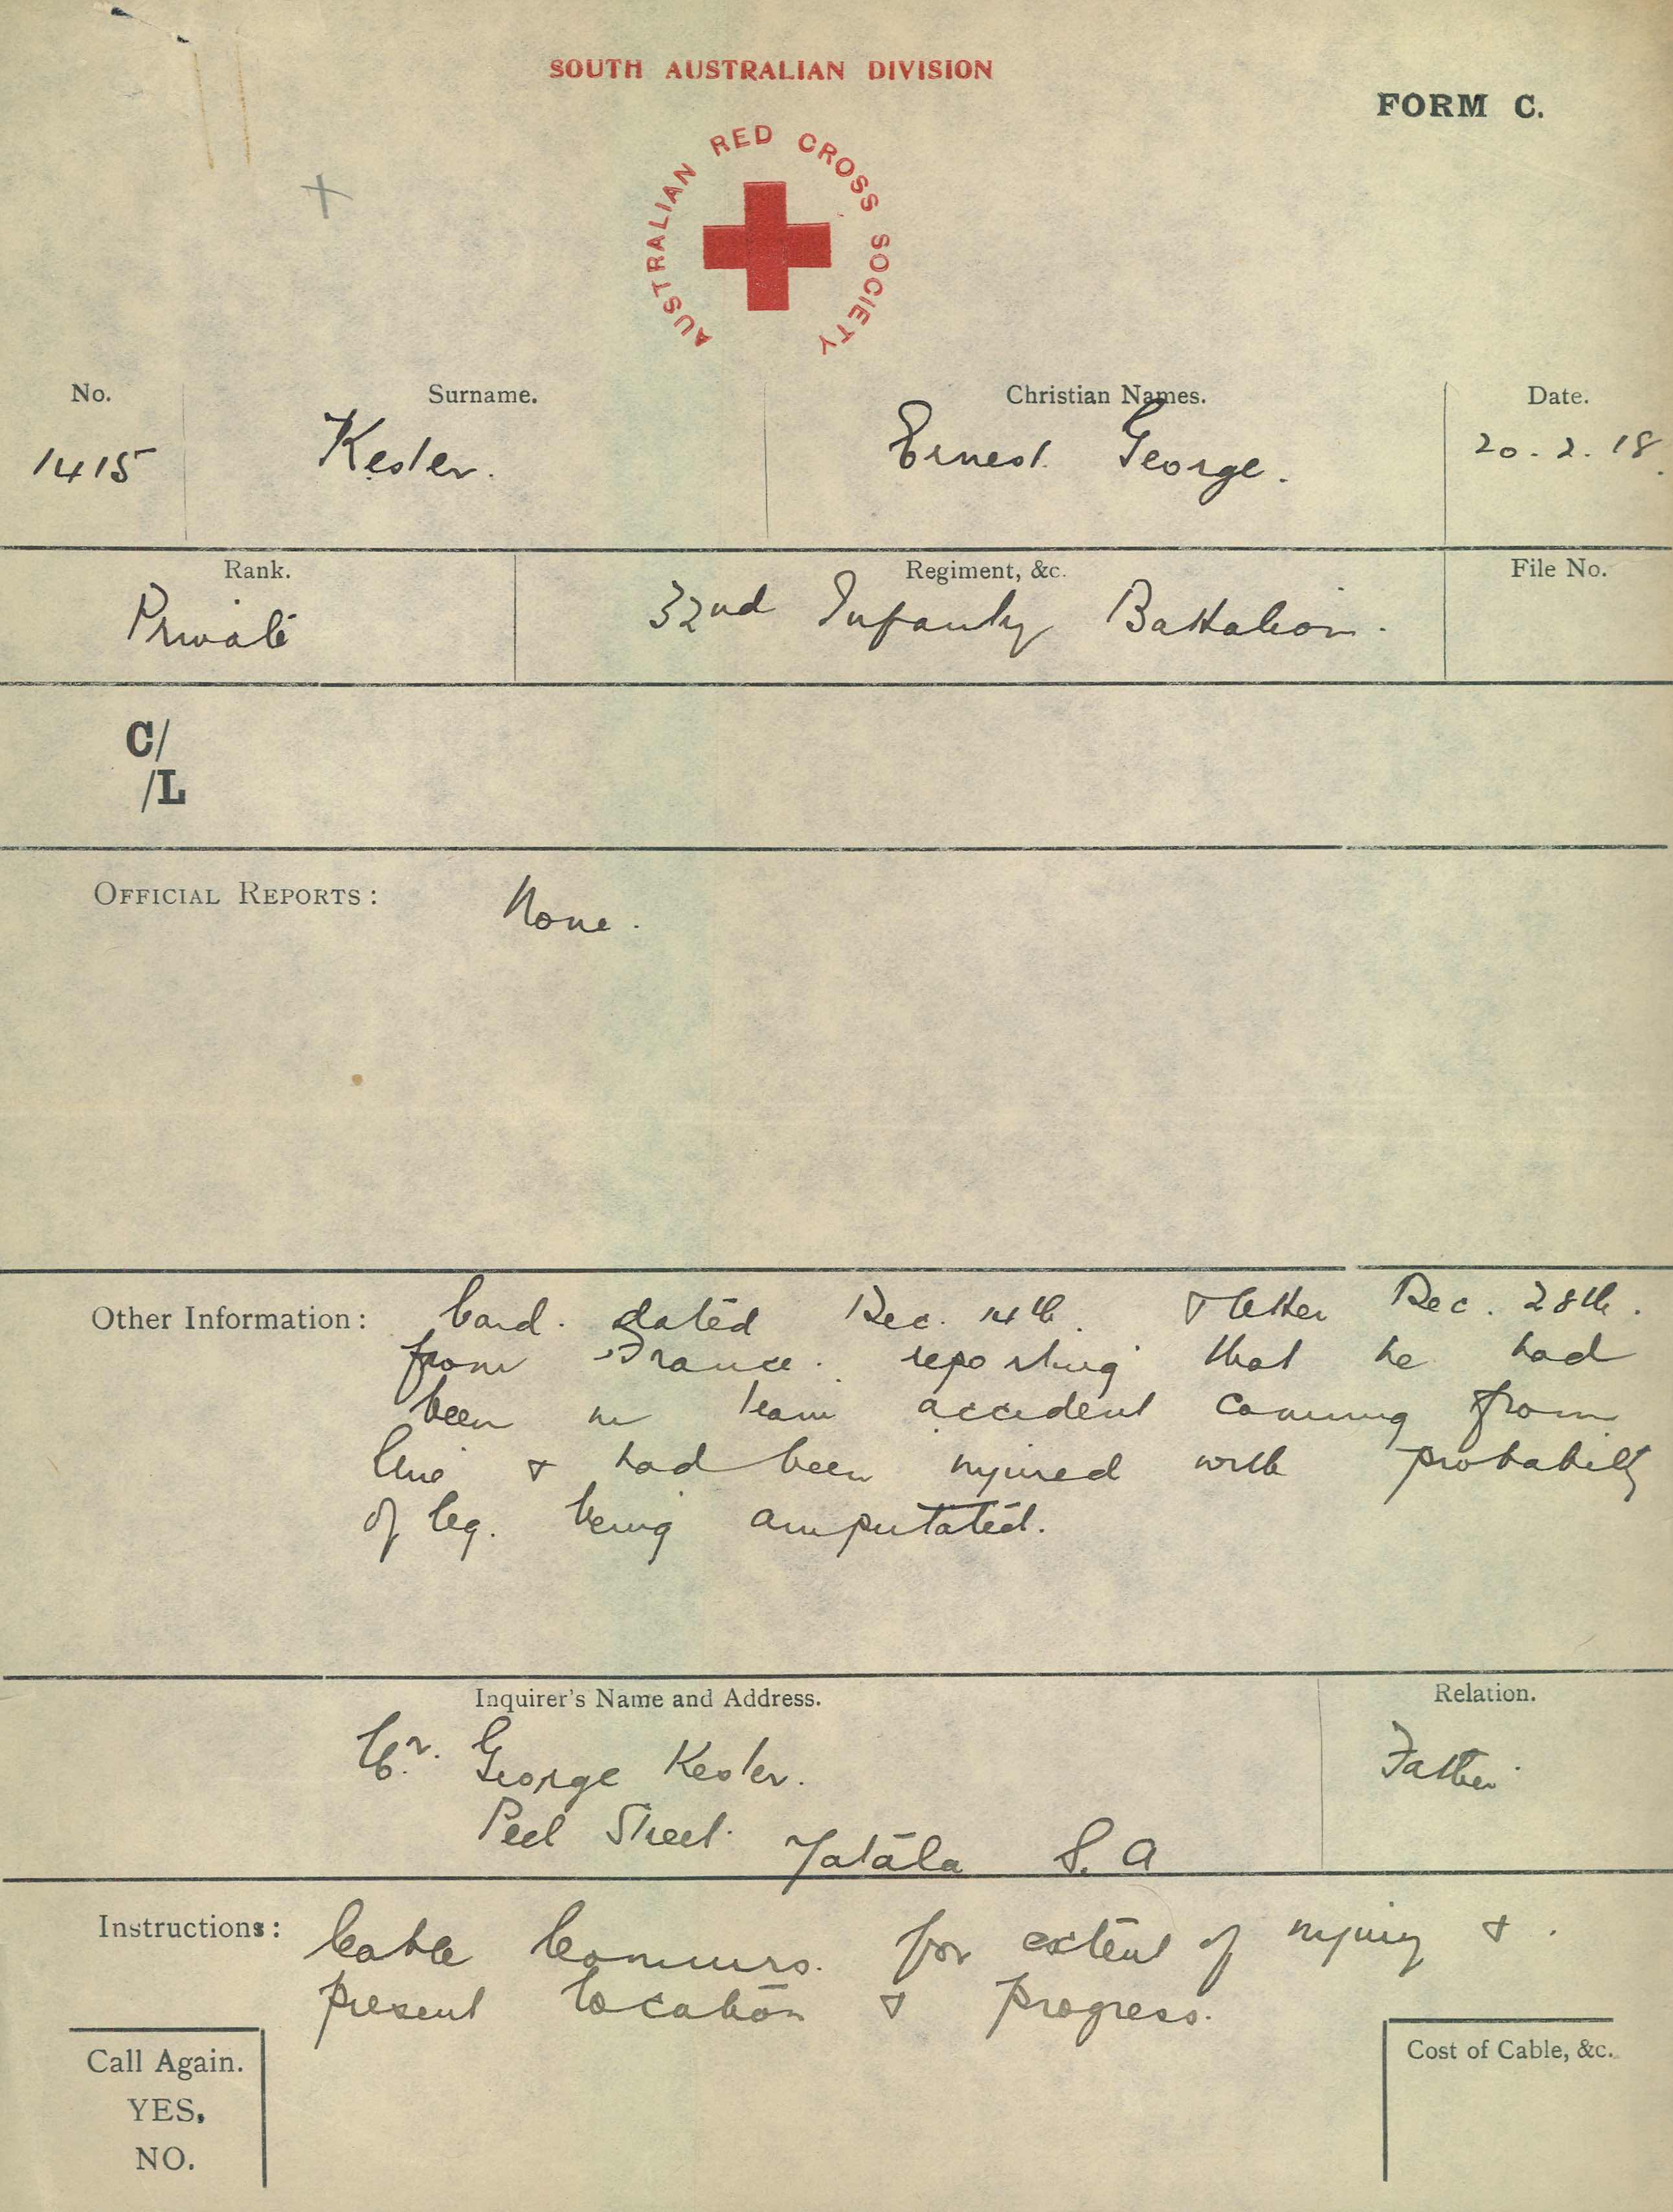 SOUTH AUSTRALIAN DIVISION
FORM C.
AUSTRALIAN RED CROSS SOCIETY
No. Surname. Christian Names. Date.
1415 Kesler. Ernest George. 20.2.18.
Rank. Regiment, &c. File No.
Private 32nd Infantry Battalion.
C/
/L
OFFICIAL REPORTS: None.
Other Information: Card. dated Dec. 14th. & letter Dec. 28th.
from France. reporting that he had
been in accident coming from
line & had been injured with probability
of leg. being amputated.
Inquirer's Name and Address. Relation.
George Kesler. Father
Peel Street. Yatala S. A
Instructions: Cable Commrs. for extent of injury &.
present location & progress.
Call Again.
YES,
NO.
Cost of Cable, &c.